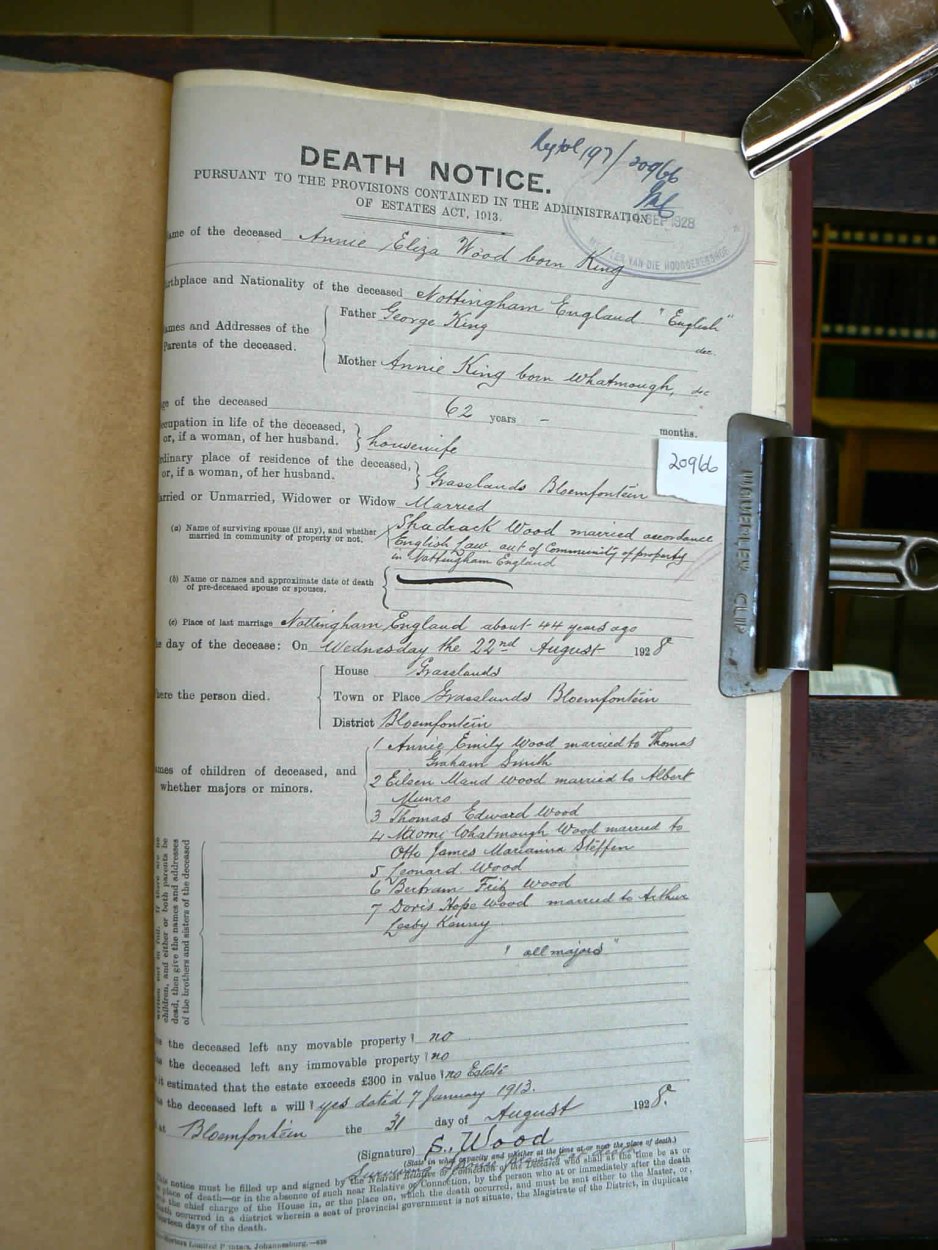 20966
DEATH NOTICE.
PURSUANT TO THE PROVISIONS CONTAINED IN THE ADMINISTRATION
OF ESTATES ACT, 1913.
SEP 1928
VAN DIE HOOGGEREGSHOF
ame of the deceased Annie Eliza Wood born King
rthplace and Nationality of the deceased Nottingham England "English"
ames and Addresses of the Parents of the deceased.
Father George King dec.
Mother Annie King born Whatmough, dec
ge of the deceased 62 years – months.
ccupation in life of the deceased, or, if a woman, of her husband. } housewife
20966
rdinary place of residence of the deceased, or, if a woman, of her husband. } Grasslands Bloemfontein
arried or Unmarried, Widower or Widow Married
(a) Name of surviving spouse (if any), and whether married in community of property or not. Shadrack Wood married accordance
English Law out of Community of property
in Nottingham England
(b) Name or names and approximate date of death of pre-deceased spouse or spouses.
(c) Place of last marriage Nottingham England about 44 years ago
e day of the decease: On Wednesday the 22nd August 1928
here the person died.
House Grasslands
Town or Place Grasslands Bloemfontein
District Bloemfontein
ames of children of deceased, and whether majors or minors.
1 Annie Emily Wood married to Thomas
Graham Smith
2 Eileen Maud Wood married to Albert
Munro
3 Thomas Edward Wood
4 Naomi Whatmough Wood married to
Otto James Marianna Steffen
5 Leonard Wood
6 Bertram Fritz Wood
7 Doris Hope Wood married to Arthur
Lesby Kenny
"all majors"
children, and either or both parents be
dead, then give the names and addresses
of the brothers and sisters of the deceased
s the deceased left any movable property? no
s the deceased left any immovable property? no
it estimated that the estate exceeds £300 in value? no Estate
as the deceased left a will? yes dated 7 January 1913.
at Bloemfontein the 31 day of August 1928.
(Signature) S. Wood
(State in what capacity and whether at the time at or near the place of death.)
his notice must be filled up and signed by the Nearest Relative or Connection of the Deceased who shall at the time be at or
place of death—or in the absence of such near Relative or Connection, by the person who at or immediately after the death
the chief charge of the House in, or the place on, which the death occurred, and must be sent either to the Master, or,
death occurred in a district wherein a seat of provincial government is not situate, the Magistrate of the District, in duplicate
rteen days of the death.
Limited Printers, Johannesburg.